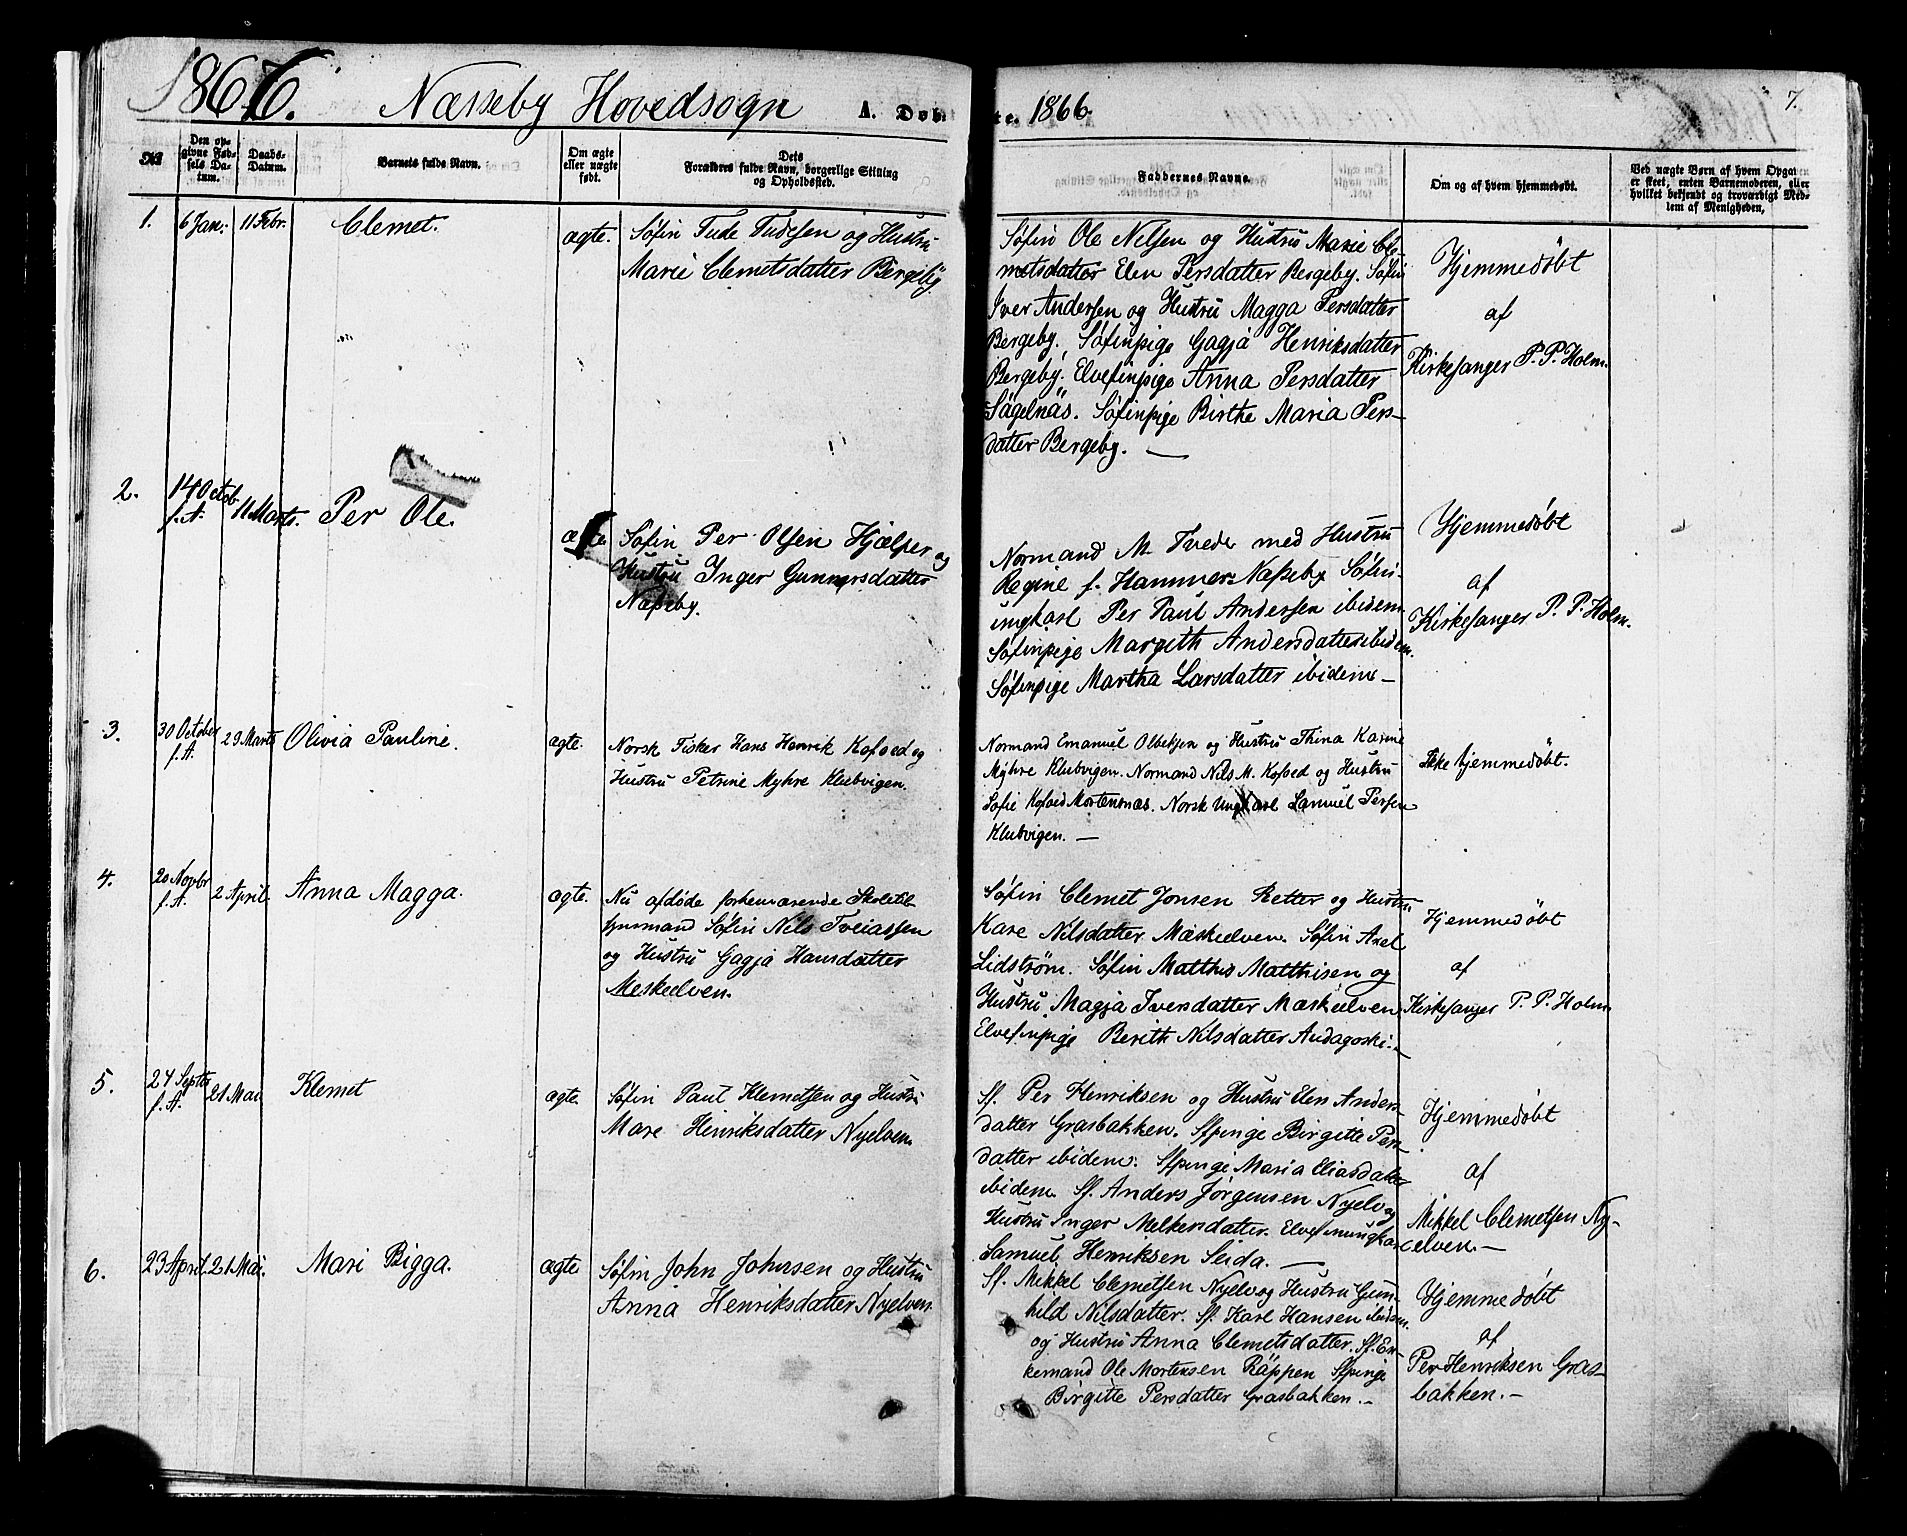 1866. Næsseby Hovedsogn A. Døbte. 1866. 7.
№
Den op-
givne Fød-
sels Da-
tum.
Daabs-
Datum.
Barnets fulde Navn.
Om ægte
eller uægte
født.
Dets
Forældres fulde Navn, borgerlige Stilling
og Opholdssted.
Faddernes Navne.
Om og af hvem hjemmedøbt.
Ved uægte Børn af hvem Opgaven
er skeet, enten Barnemoderen, eller
hvilket bekjendt og troværdigt Med-
lem af Menigheden.
1. 6 Jan: 11 Febr. Clemet. ægte.
Søfin Tude Tudesen og Hustru
Marie Clemetsdatter Bergeby
Søfin Ole Nilsen og Hustru Marie Cle-
metsdatter Elen Persdatter Bergeby. Søfin
Iver Andersen og Hustru Magga Persdatter
Bergeby. Søfinpige Gagja Henriksdatter
Bergeby. Elvefinpige Anna Persdatter
Sägelnäs. Søfinpige Birthe Maria Pers-
datter Bergeby. —
Hjemmedøbt
af
Kirkesanger P. P. Holm.
2. 14 Octob. f. A. 11 Marts. Per Ole. ægte
Søfin Per Olsen Hjælper og
Hustru Inger Gunnarsdatter
Næsseby.
Normand M. Tveder med Hustru
Regine f. Hammer Næsseby Søfin-
ungkarl Per Paul Andersen ibidem
Søfinpige Margith Andersdatter ibidem.
Søfinpige Martha Larsdatter ibidem —
Hjemmedøbt
af
Kirkesanger P. P. Holm.
3. 30 October f. A. 29 Marts Olivia Pauline. ægte.
Norsk Fisker Hans Henrik Kofoed og
Hustru Petrine Myhre Klubvigen.
Normand Emanuel Olbeksen og Hustru Thina Karine
Myhre Klubvigen. Normand Nils M. Kofoed og Hustru
Sofie Kofoed Mortensnæs. Norsk Ungkarl Samuel Persen
Klubvigen. —
Ikke hjemmedøbt.
4. 20 Novbr f. A. 2 April. Anna Magga. ægte.
Nu afdøde forhenværende Skoletil-
synsmand Søfin Nils Tveiassen
og Hustru Gagja Hansdatter
Meskelven.
Søfin Clemet Jonsen Retter og Hustru
Kare Nilsdatter Mæskelven. Søfin Axel
Lidstrøm. Søfin Matthis Matthisen og
Hustru Magja Iversdatter Mæskelven
Elvefinpige Berith Nilsdatter Audagoski. —
Hjemmedøbt
af
Kirkesanger P. P. Holm
5. 24 Septbr f. A. 21 Mai Klemet ægte.
Søfin Paul Klemetsen og Hustru
Mare Henriksdatter Nyelven
Sf. Per Henriksen og Hustru Elen Anders-
datter Grasbakken. Sfpinge Birgitte Pers-
datter ibidem. Sfpinge Maria Eliasdatter
ibidem. Sf. Anders Jørgensen Nyelv og
Hustru Inger Melkersdatter. Elvefinungkarl
Samuel Henriksen Seida. —
Hjemmedøbt
af
Mikkel Clemetsen Ny-
elven. —
6. 23 April. 21 Mai. Mari Bigga. ægte
Søfin John Johnsen og Hustru
Anna Henriksdatter Nyelven.
Sf. Mikkel Clemetsen Nyelv og Hustru Gun-
hild Nilsdatter. Sf. Karl Hansen ibidem.
og Hustru Anna Clemetsdatter. Sf. En-
kemand Ole Mortensen Räppen Sfpinge
Birgitte Persdatter Grasbakken. —
Hjemmedøbt
af
Per Henriksen Gras-
bakken. —